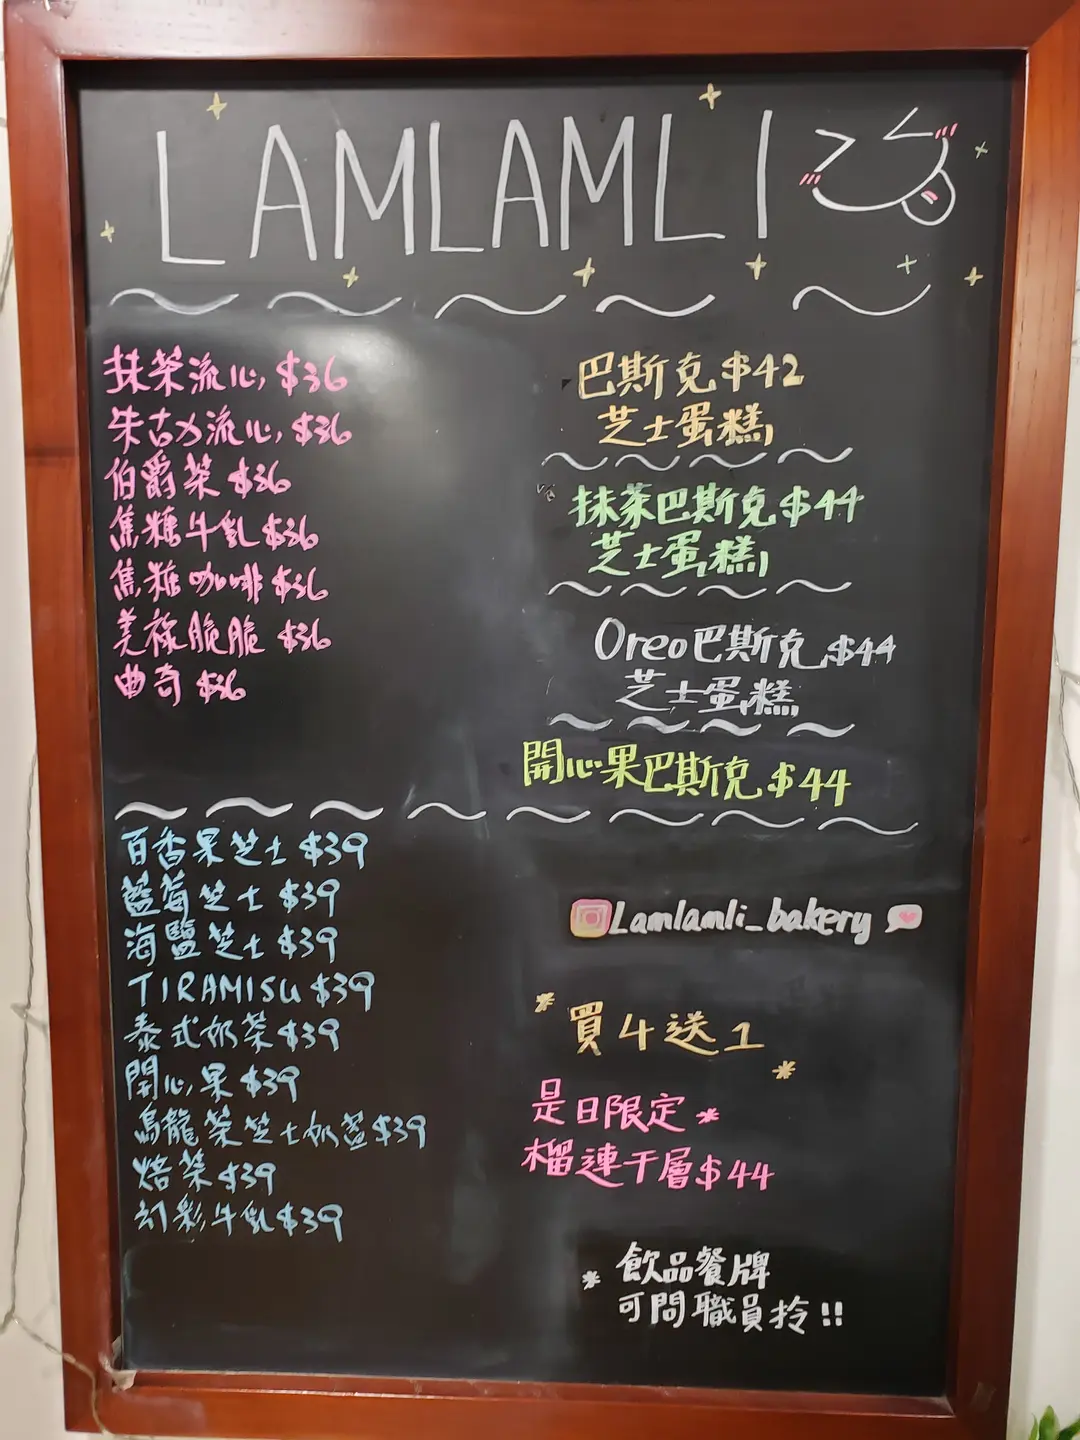 LAMLAMLI
抹茶流心 $36
朱古力流心 $36
伯爵茶 $36
焦糖牛乳 $36
焦糖咖啡 $36
美祿脆脆 $36
曲奇 $36
百香果芝士 $39
藍莓芝士 $39
海鹽芝士 $39
TIRAMISU $39
泰式奶茶 $39
開心果 $39
烏龍茶芝士奶蓋 $39
焙茶 $39
幻彩牛乳 $39
巴斯克 $42
芝士蛋糕
抹茶巴斯克 $44
芝士蛋糕
Oreo巴斯克 $44
芝士蛋糕
開心果巴斯克 $44
Lamlamli_bakery
*買4送1*
是日限定*
榴連千層 $44
* 飲品餐牌
可問職員拎!!